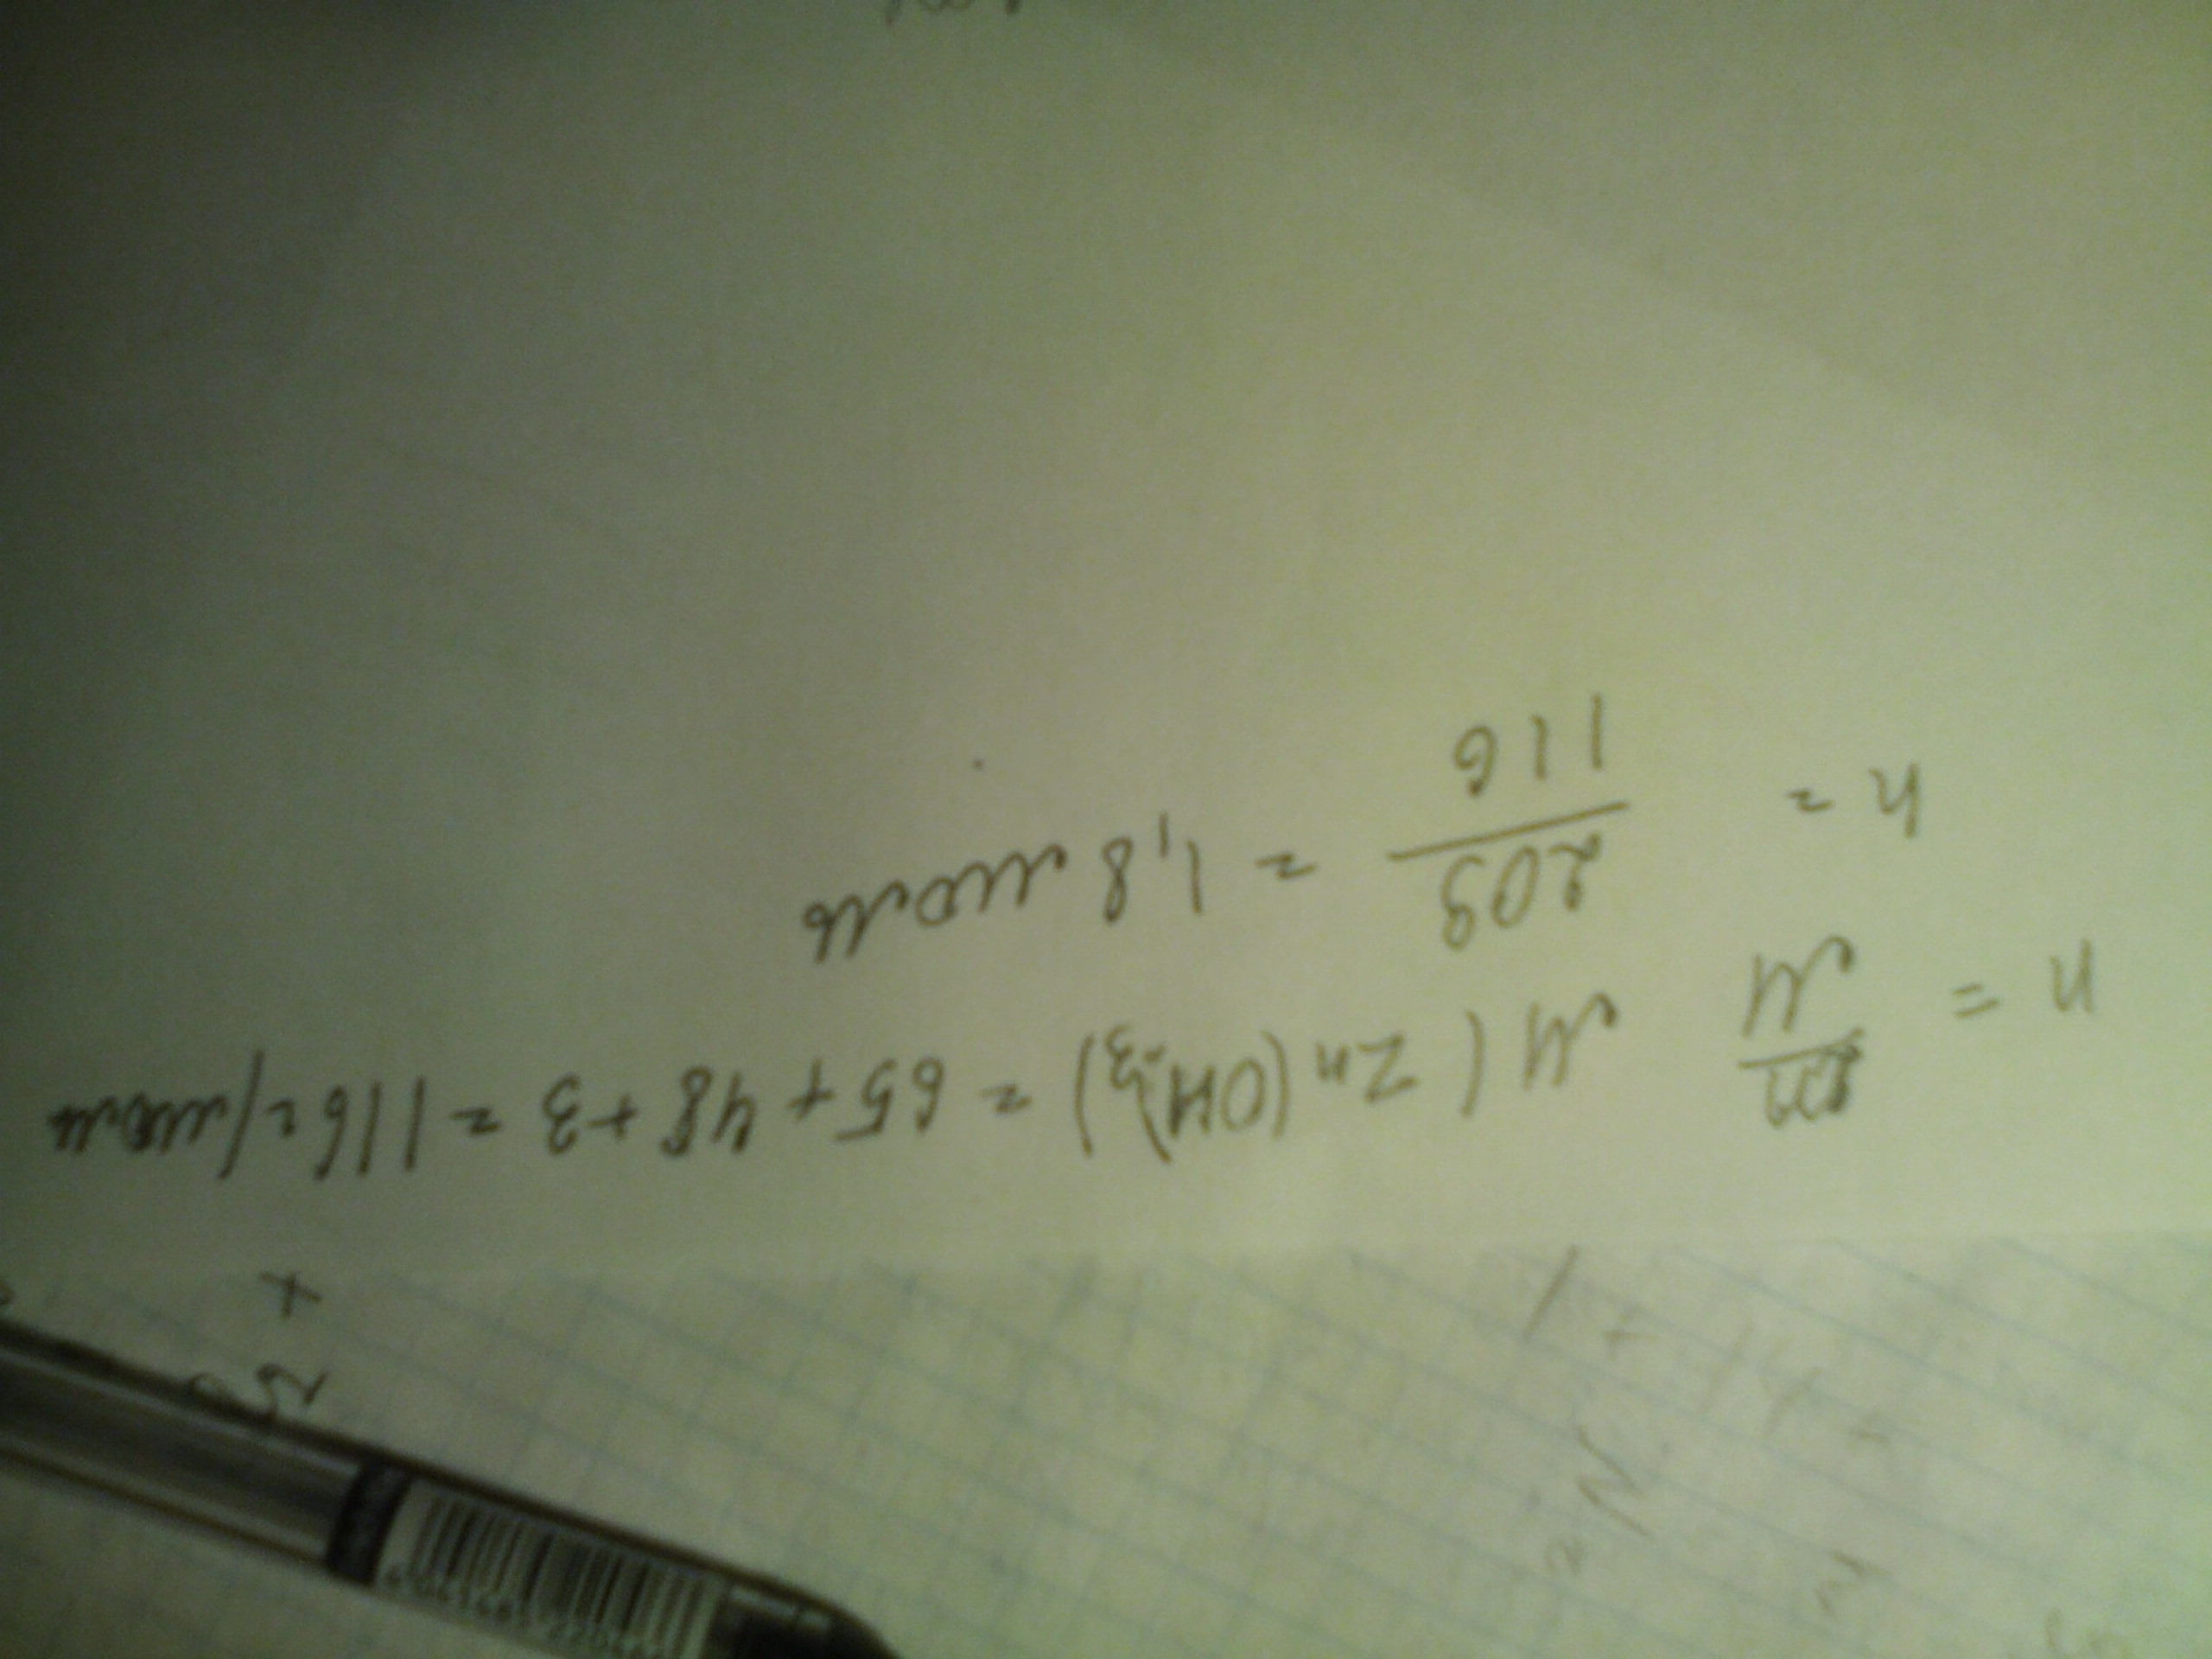 n = m/M M(Zn(OH)3) = 65 + 48 + 3 = 116 г/моль
n = 203/116 = 1,8 моль
N2